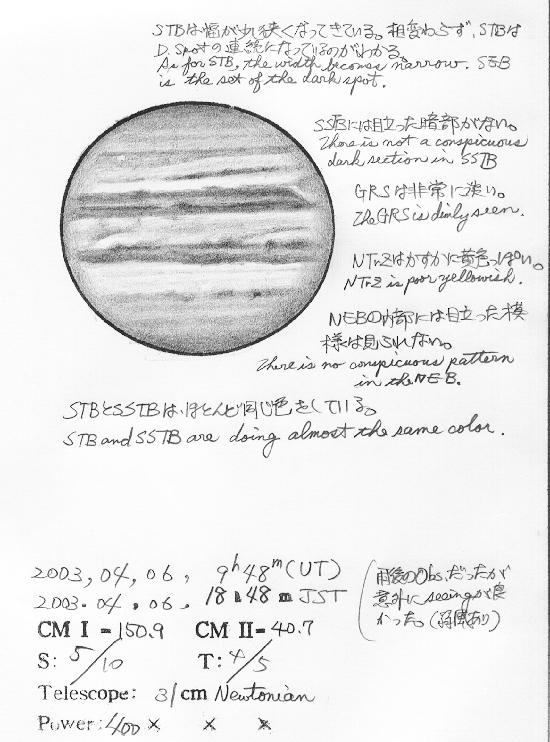 STBは幅が少し狭くなってきている。相変わらず、STBは
D. Spotの連続になっているのがわかる。
As for STB, the width becomes narrow. SEB
is the set of the dark spot.
SSTBには目立った暗部がない。
There is not a conspicuous
dark section in SSTB
GRSは非常に淡い。
The GRS is dimly seen.
NTrZはかすかに黄色っぽい。
NTrZ is poor yellowish.
NEBの内部には目立った模
様は見られない。
There is no conspicuous pattern
in the NEB.
STBとSSTBは、ほとんど同じ色をしている。
STB and SSTB are doing almost the same color.
2003, 04, 06, 9h48m (UT)
2003. 04. 06. 18 48 JST
CM I = 150.9 CM II = 40.7
S: 5/10 T: 4/5
Telescope: 31 cm Newtonian
Power: 400 × × ×
雨後のObs.だったが
意外にseeingが良
かった。